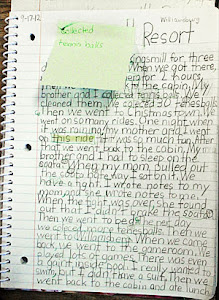 9-17-12
Williamsburg
Resort
collected
tennis balls
Kingsmill for three
days. When we got there,
for 2 hours,
in the cabin. My
brother and I collected tennis balls. We
cleaned them. We collected 30 tennis balls.
Then we went to Christmas town. We
went on so many rides. One night when
it was raining, my mother and I went
on this ride. It was so much fun. After
that we went back to the cabin. My
brother and I had to sleep on the
When my mom pulled out
the couch
have a fight. I wrote notes to my
mom and she wrote notes to me.
When the fight was over, she found
out that I didn't have the
Then we went to bed. The next day
we collected more tennis balls. Then we
went to Williamsburg. When we came
back, we went to the game room. We
played lots of games. There was even
a pool inside. I really wanted to
swim, but I didn't have a suit. Then we
went back to the cabin and ate lunch